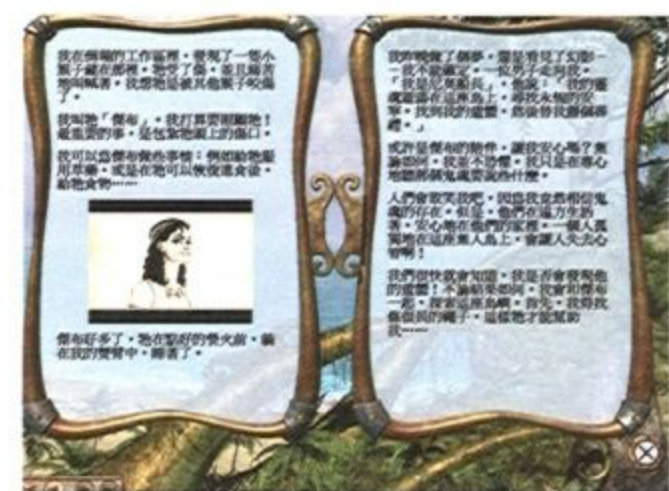 我在側翼的工作區裡，發現了一隻小
猴子藏在那裡。牠受了傷，並且痛苦
地叫喊著。我想牠是被其他猴子咬傷
了。
我叫牠「傑布」。我打算要照顧牠！
最重要的事，是包紮牠頭上的傷口。
我可以為傑布做些事情：例如給牠服
用草藥。或是在牠可以恢復進食後，
給牠食物……
傑布好多了。牠在點好的營火前，躺
在我的雙臂中，睡著了。
我昨晚做了個夢，還是看見了幻影－
－我不能確定。一位男子走向我。
「我是尼莫船長」。他說：「我的靈
魂遊蕩在這座島上，尋找永恆的安
寧。找到我的遺體，然後替我辦個葬
禮。」
或許是傑布的陪伴，讓我安心嗎？無
論如何，我並不恐懼。我只是在專心
地聽那個鬼魂要說些什麼。
人們會取笑我吧，因為我竟然相信鬼
魂的存在。但是，他們在遠方生活
著，安心地在他們的家裡。一個人孤
獨地在這座無人島上，會讓人失去心
智啊！
我們很快就會知道，我是否會發現他
的遺體！不論結果如何，我會和傑布
一起，探索這座島嶼。首先，我得找
條很長的繩子，這樣牠才能幫助
我……